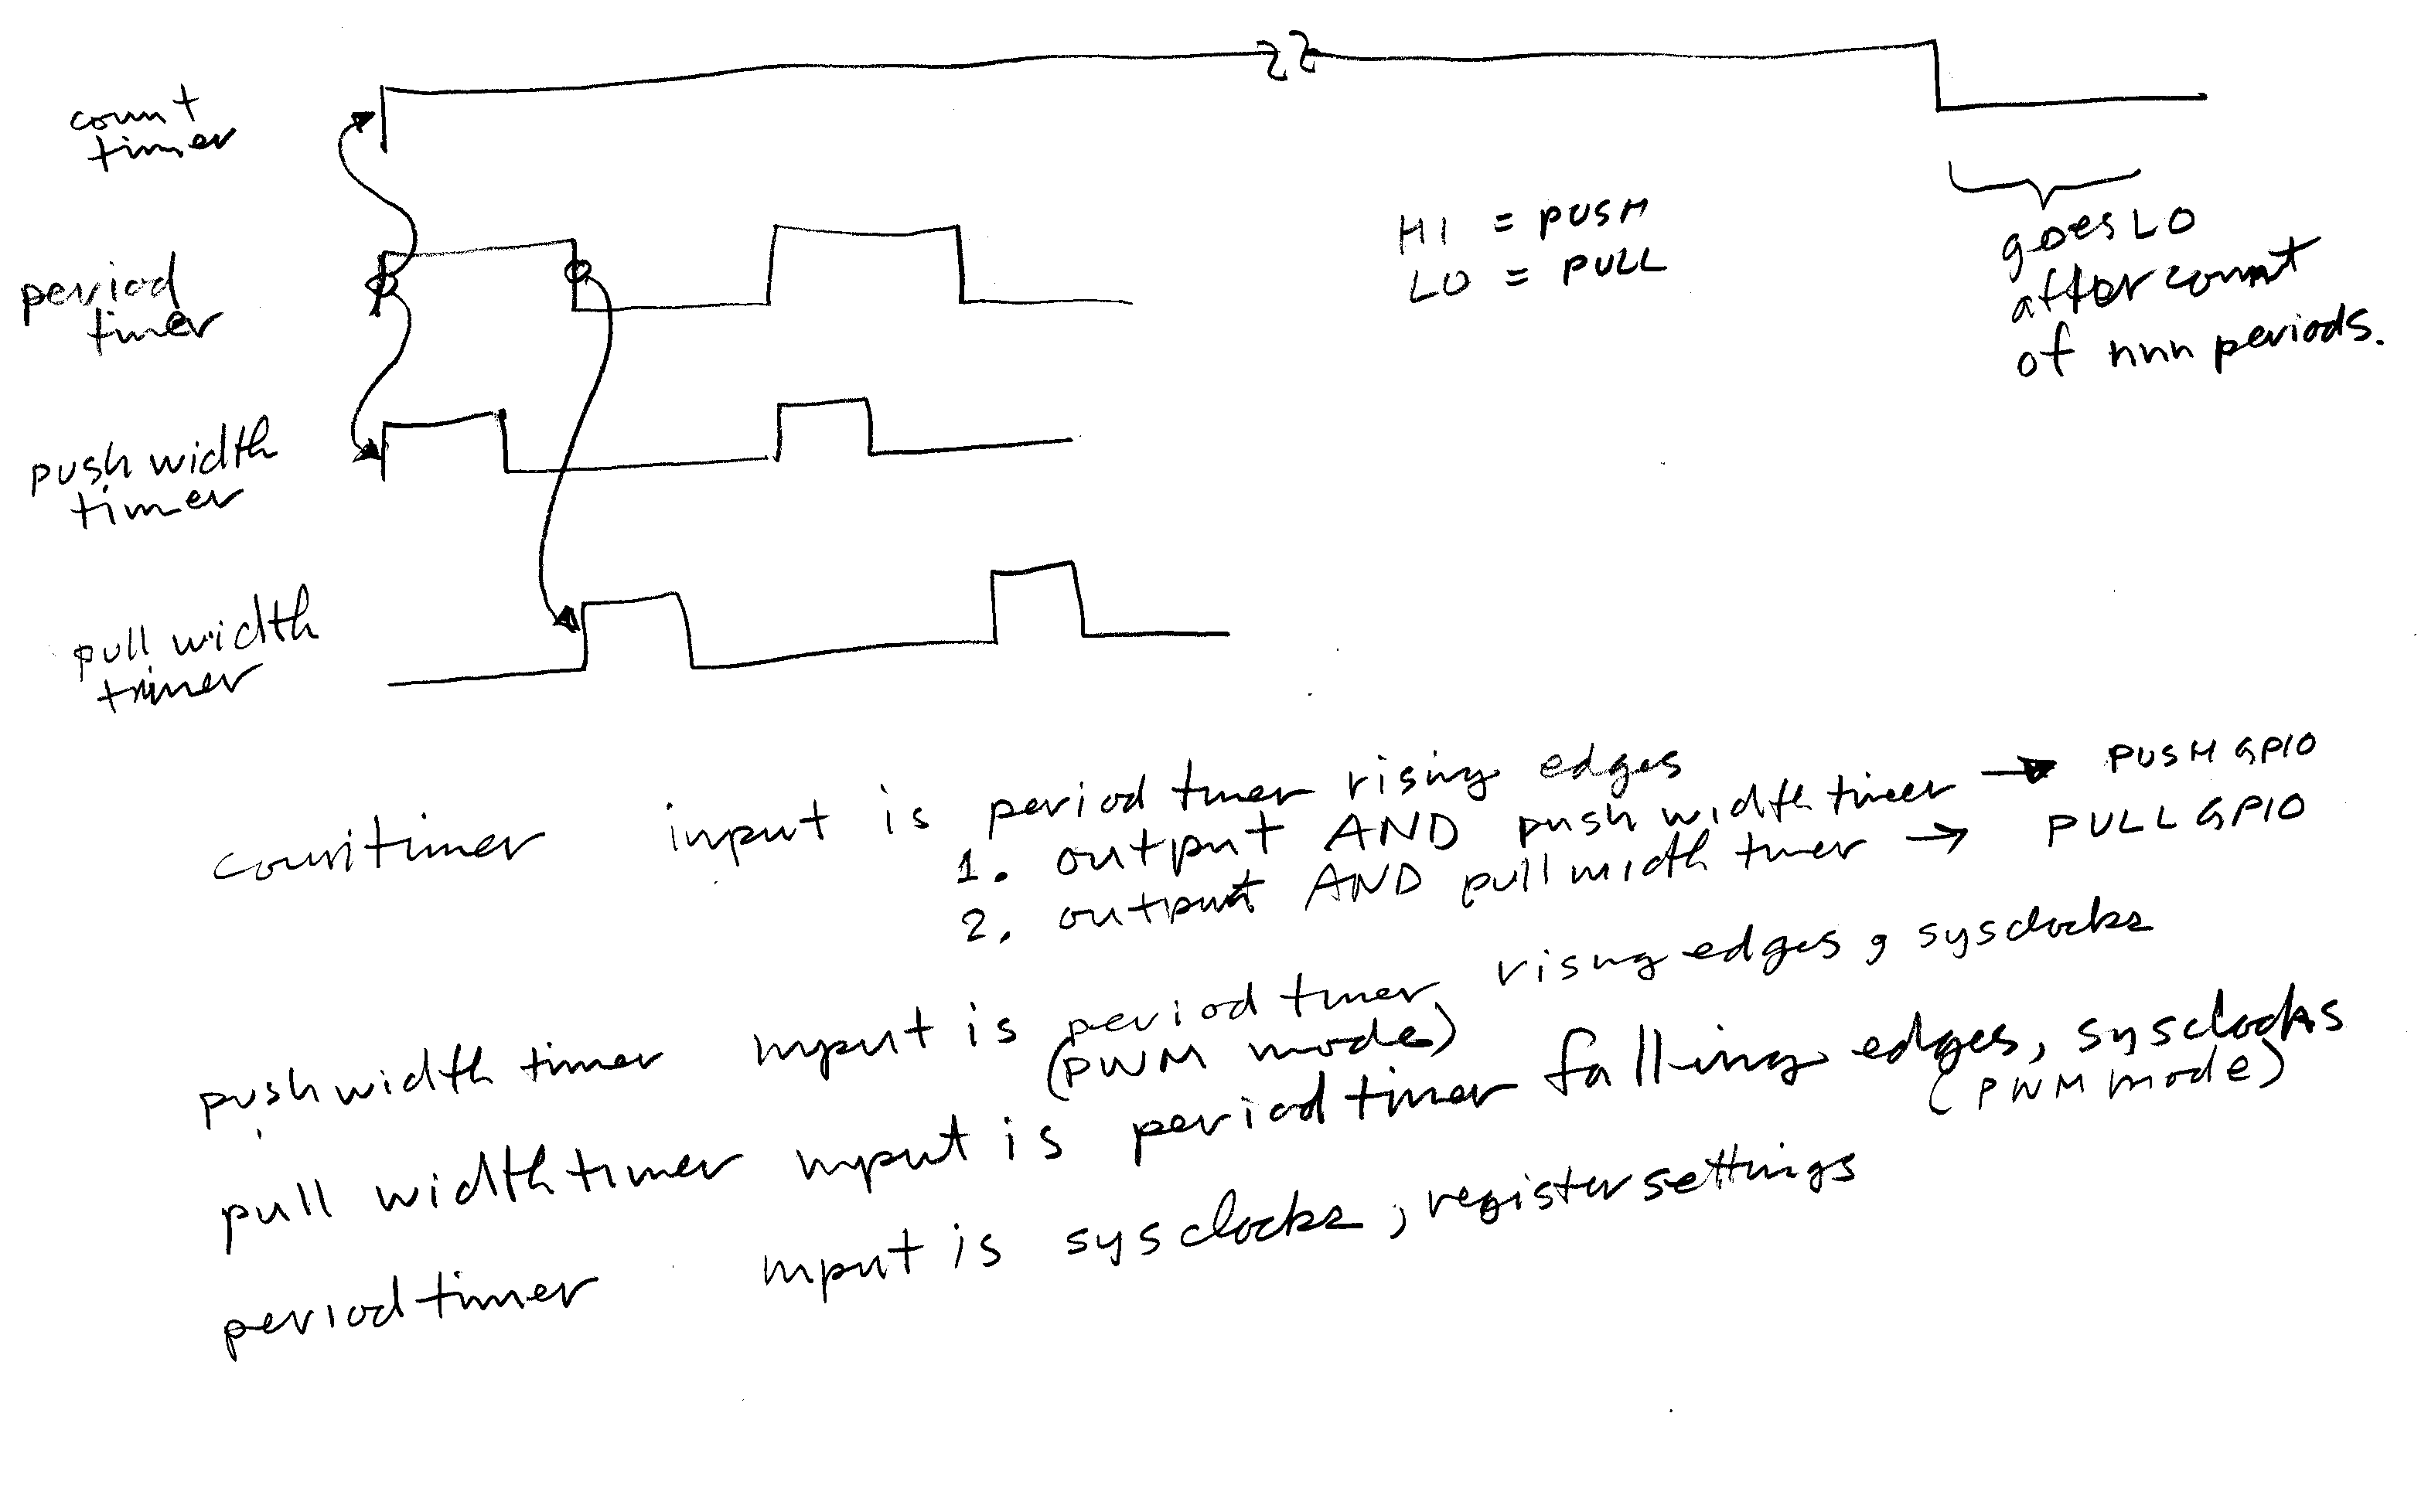 count
timer
period
timer
push width
timer
pull width
timer
HI = PUSH
LO = PULL
goes LO
after count
of nnn periods.
count timer input is period timer rising edges
1. output AND push width timer → PUSH GPIO
2. output AND pull width timer → PULL GPIO
push width timer input is period timer rising edges, sysclocks
(PWM mode)
pull width timer input is period timer falling edges, sysclocks
(PWM mode)
period timer input is sysclocks, register settings